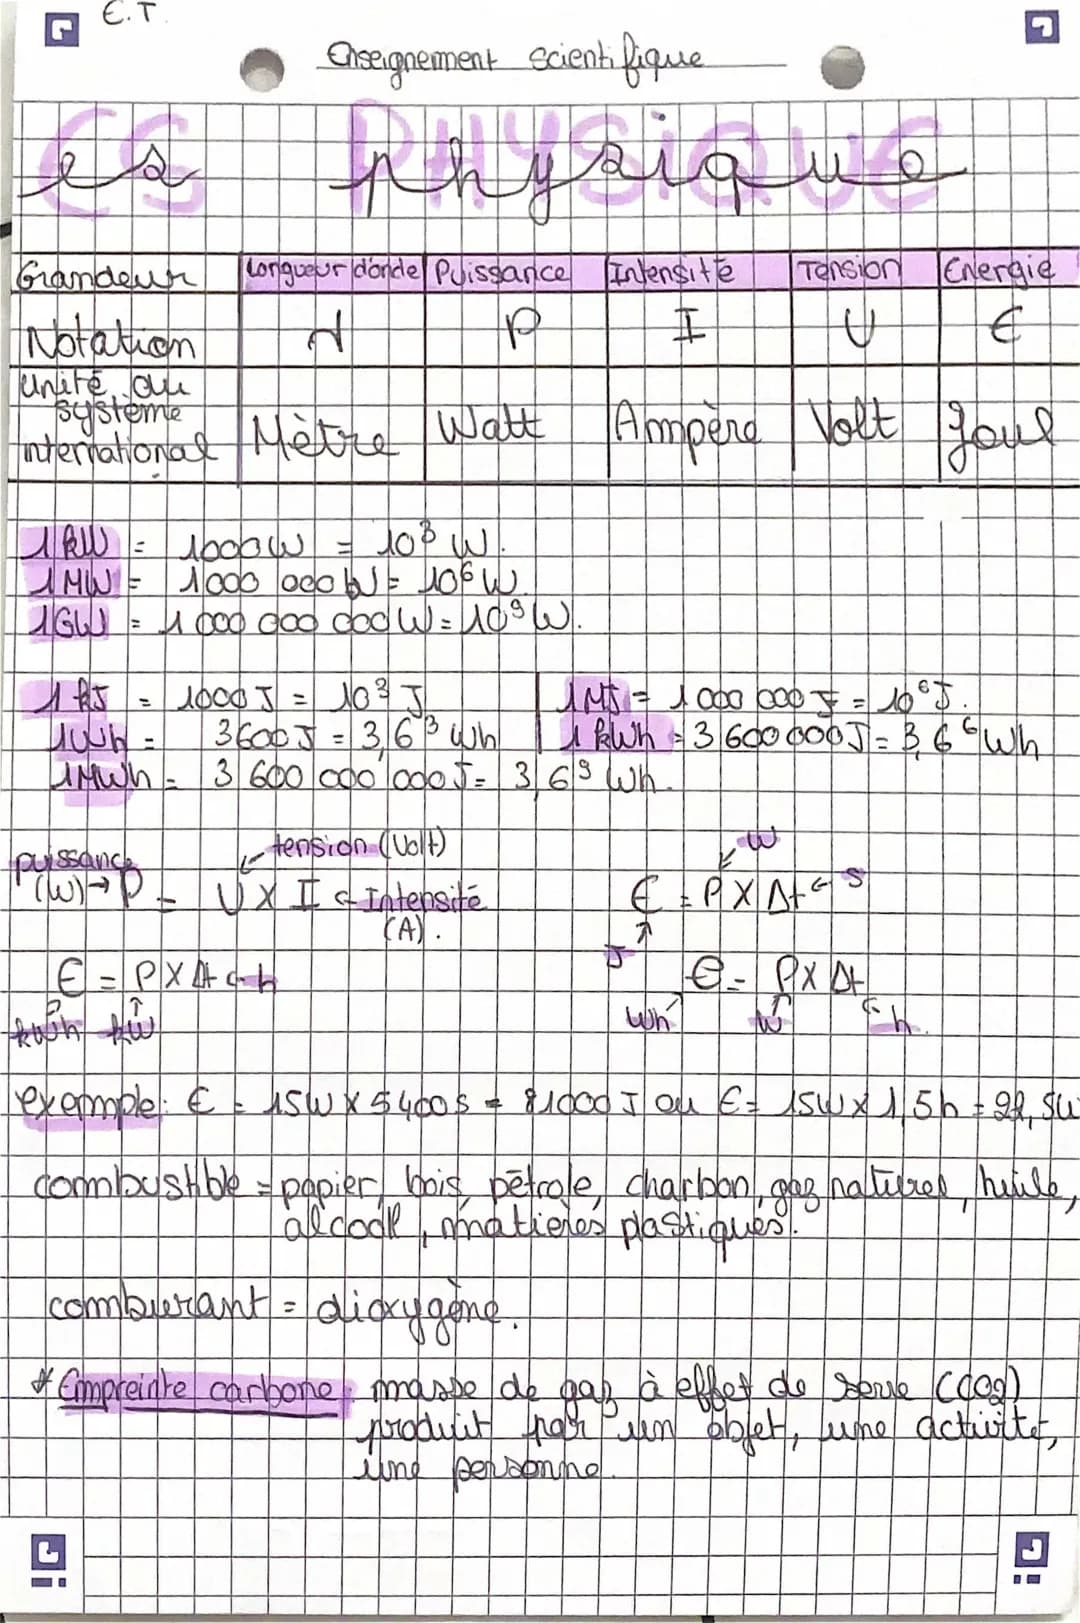 E.T.
Enseignement scientifique
es physique
ES PHYSIQUE
Grandeur Longueur d'onde Puissance Intensité Tension Energie
Notation λ P I U E
unité du système international Mètre Watt Ampère Volt Joul
1 kW = 1000 W = 10³ W.
1 MW = 1000 000 W = 10⁶ W.
1GW = 1 000 000 000 W = 10⁹ W.
1 kJ = 1000 J = 10³ J | 1MJ = 1 000 000 J = 10⁶ J.
1Wh = 3600 J = 3,6³ Wh | 1 kWh = 3 600 000 J = 3,6⁶ Wh
1MWh = 3 600 000 000 J = 3,6⁹ Wh.
tension (Volt)
puissance (W) → P = U × I ← Intensité (A).
W
E = P × Δt ← s
J
E = P × Δt ← h
kWh kW
E = P × Δt
Wh W ← h.
exemple: E = 15W × 5400s = 81000 J ou E = 15W × 1,5h = 22,5W
combustible = papier, bois, pétrole, charbon, gaz naturel, huile,
alcool, matières plastiques.
comburant = dioxygène.
* Empreinte carbone: masse de gaz à effet de serre (CO2)
produit par un objet, une activité,
une personne.